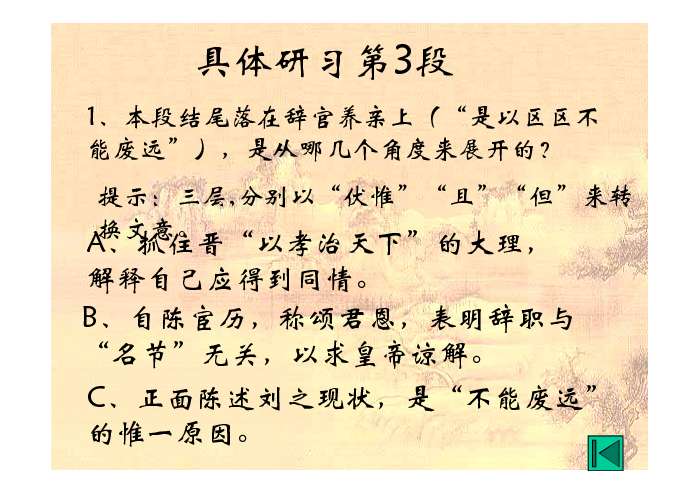 具体研习第3段
1、本段结尾落在辞官养亲上（“是以区区不
能废远”），是从哪几个角度来展开的？
提示：三层,分别以“伏惟”“且”“但”来转
换文意。
A、抓住晋“以孝治天下”的大理，
解释自己应得到同情。
B、自陈宦历，称颂君恩，表明辞职与
“名节”无关，以求皇帝谅解。
C、正面陈述刘之现状，是“不能废远”
的惟一原因。